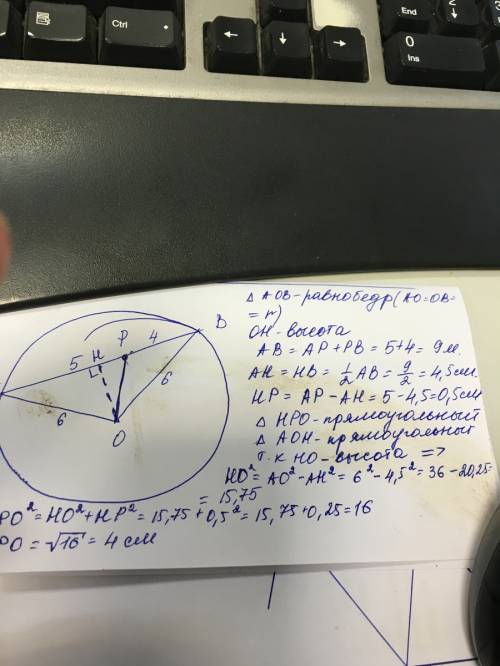 Ctrl
←
↓
→
End
2
↓
3
0
Ins
P
4
B
5
H
6
6
O
Δ AOB-равнобедр(AO=OB=
= r)
OH-высота
AB = AP+PB = 5+4 = 9м.
AH = HB = 1/2 AB = 9/2 = 4,5см.
HP = AP - AH = 5 - 4,5 = 0,5см
Δ HPO-прямоугольный
Δ AOH-прямоугольный
т.к HO-высота =>
HO² = AO² - AH² = 6² - 4,5² = 36 - 20,25
= 15,75
PO² = HO² + HP² = 15,75 + 0,5² = 15,75 + 0,25 = 16
PO = √16 = 4 см